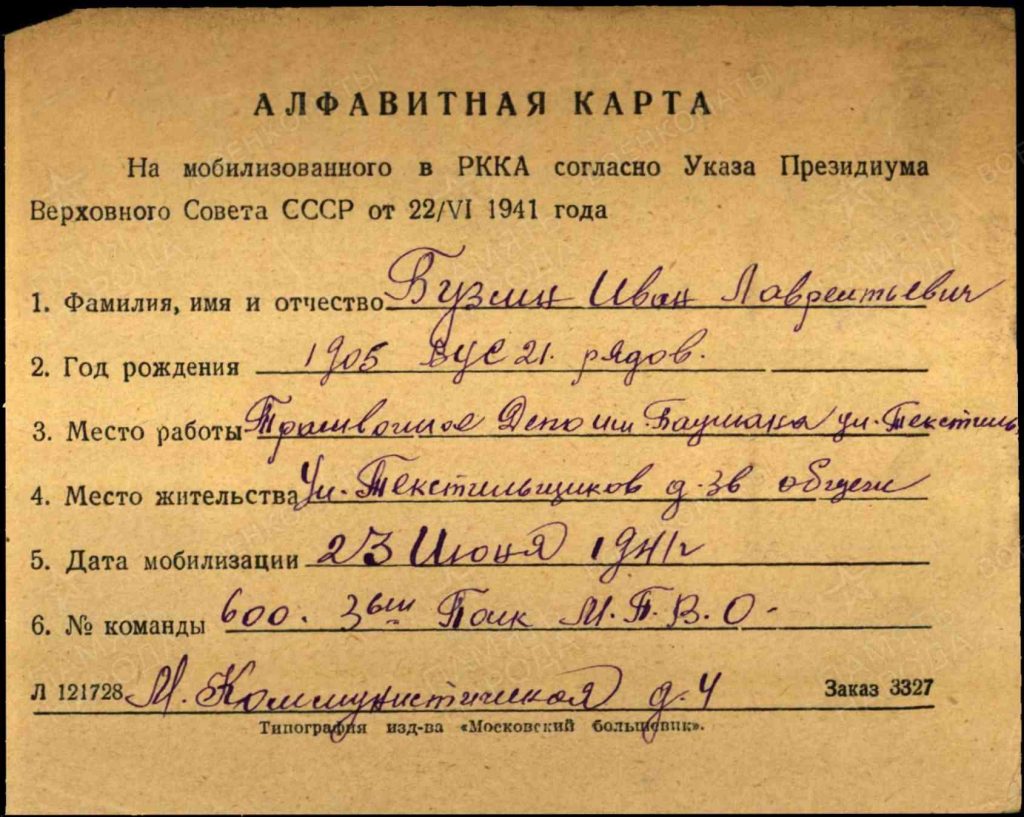 АЛФАВИТНАЯ КАРТА
На мобилизованного в РККА согласно Указа Президиума
Верховного Совета СССР от 22/VI 1941 года
1. Фамилия, имя и отчество Бузин Иван Лаврентьевич
2. Год рождения 1905 ВУС 21. рядов.
3. Место работы Трамвайное Депо им. Баумана ул. Текстиль
4. Место жительства Ул. Текстильщиков д. 3в общеж
5. Дата мобилизации 23 Июня 1941 г
6. № команды 600. 3ий Полк М.П.В.О.
Л 121728 М. Коммунистическая д. 4 Заказ 3327
Типография изд-ва «Московский большевик».